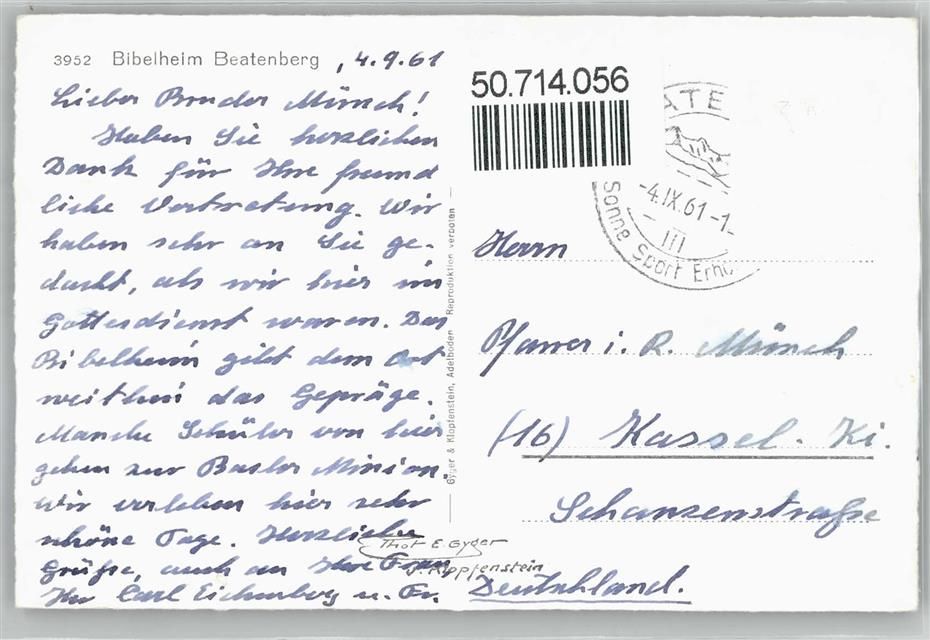 3952 Bibelheim Beatenberg, 4.9.61
Lieber Bruder Münch!
Haben Sie herzlichen
Dank für Ihre freund
liche Vertretung. Wir
haben sehr an Sie ge-
dacht, als wir hier im
Gottesdienst waren. Das
Bibelheim gibt dem Ort
weithin das Gepräge.
Manche Schüler von hier
gehen zur Basler Mission.
Wir verleben hier sehr
schöne Tage. Herzliche
Grüße, auch an Ihre Frau,
Ihr Carl Eichenberg u. Fr.
Gyger & Klopfenstein, Adelboden Reproduktion verboten
Phot E. Gyger
J. Klopfenstein
50.714.056
ATE
-4.IX.61-1
III
Sonne Sport Erho
Herrn
Pfarrer i. R. Münch
(16) Kassel. Ki.
Schanzenstraße
Deutschland.